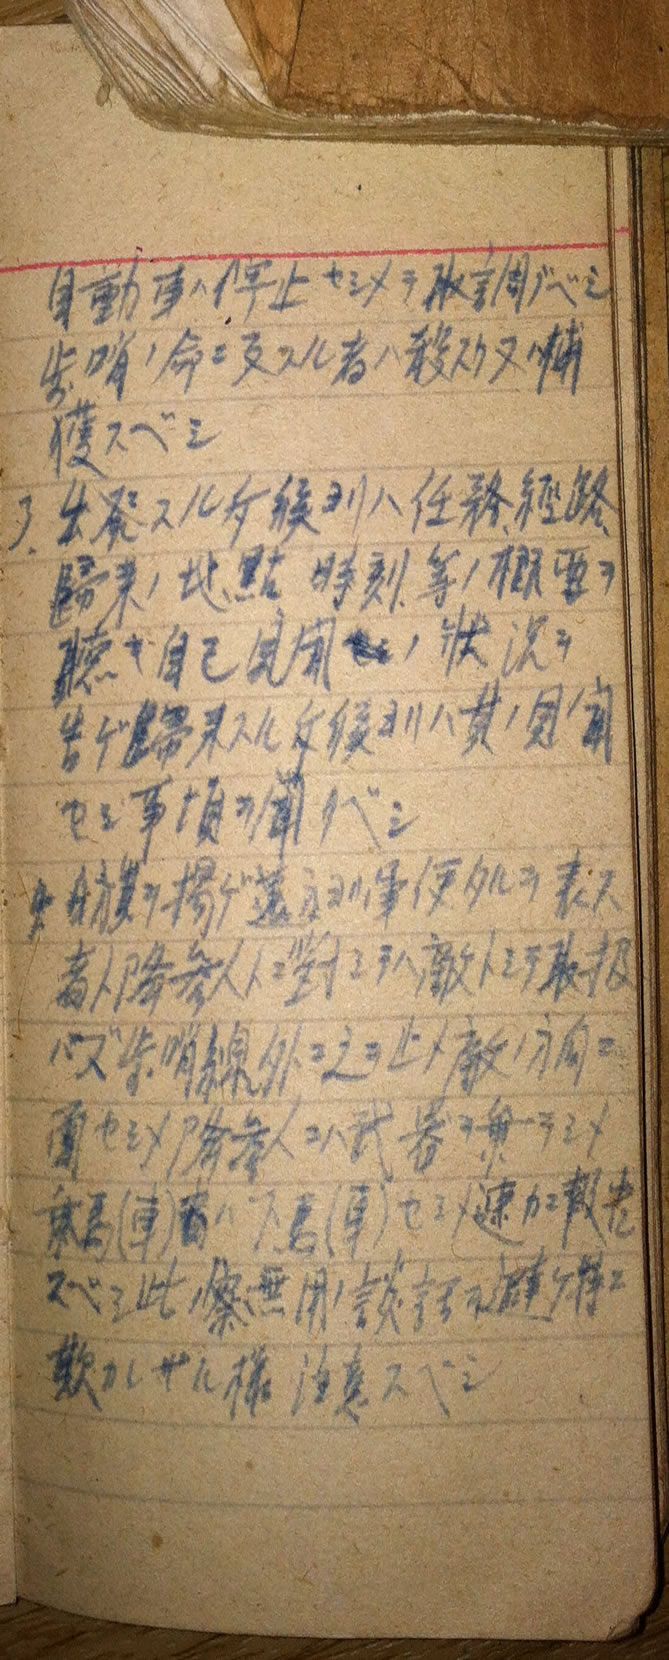 自動車ハ停止セシメテ取調ブベシ
歩哨ノ命ニ反スル者ハ殺スカ又ハ捕
獲スベシ
3. 出発スル斥候ヨリハ任務、経路、
歸来ノ地點、時刻、等ノ概要ヲ
聴キ自己見聞セシノ状況ヲ
告ゲ歸来スル斥候ヨリハ其ノ見聞
セシ事項ヲ聞クベシ
旗ヲ揚ゲ遠方ヨリ軍使タルヲ表ス
者ト降参人トニ對シテハ敵トシテ取扱
ハズ歩哨線外ニ之ヲ止メ敵ノ方向ニ
面セシメ降参人ニハ武器ヲ棄テシメ
乗馬(車)者ハ下馬(車)セシメ速カニ報告
スベシ此ノ際無用ノ談話ヲ避ケ特ニ
欺カレザル様注意スベシ